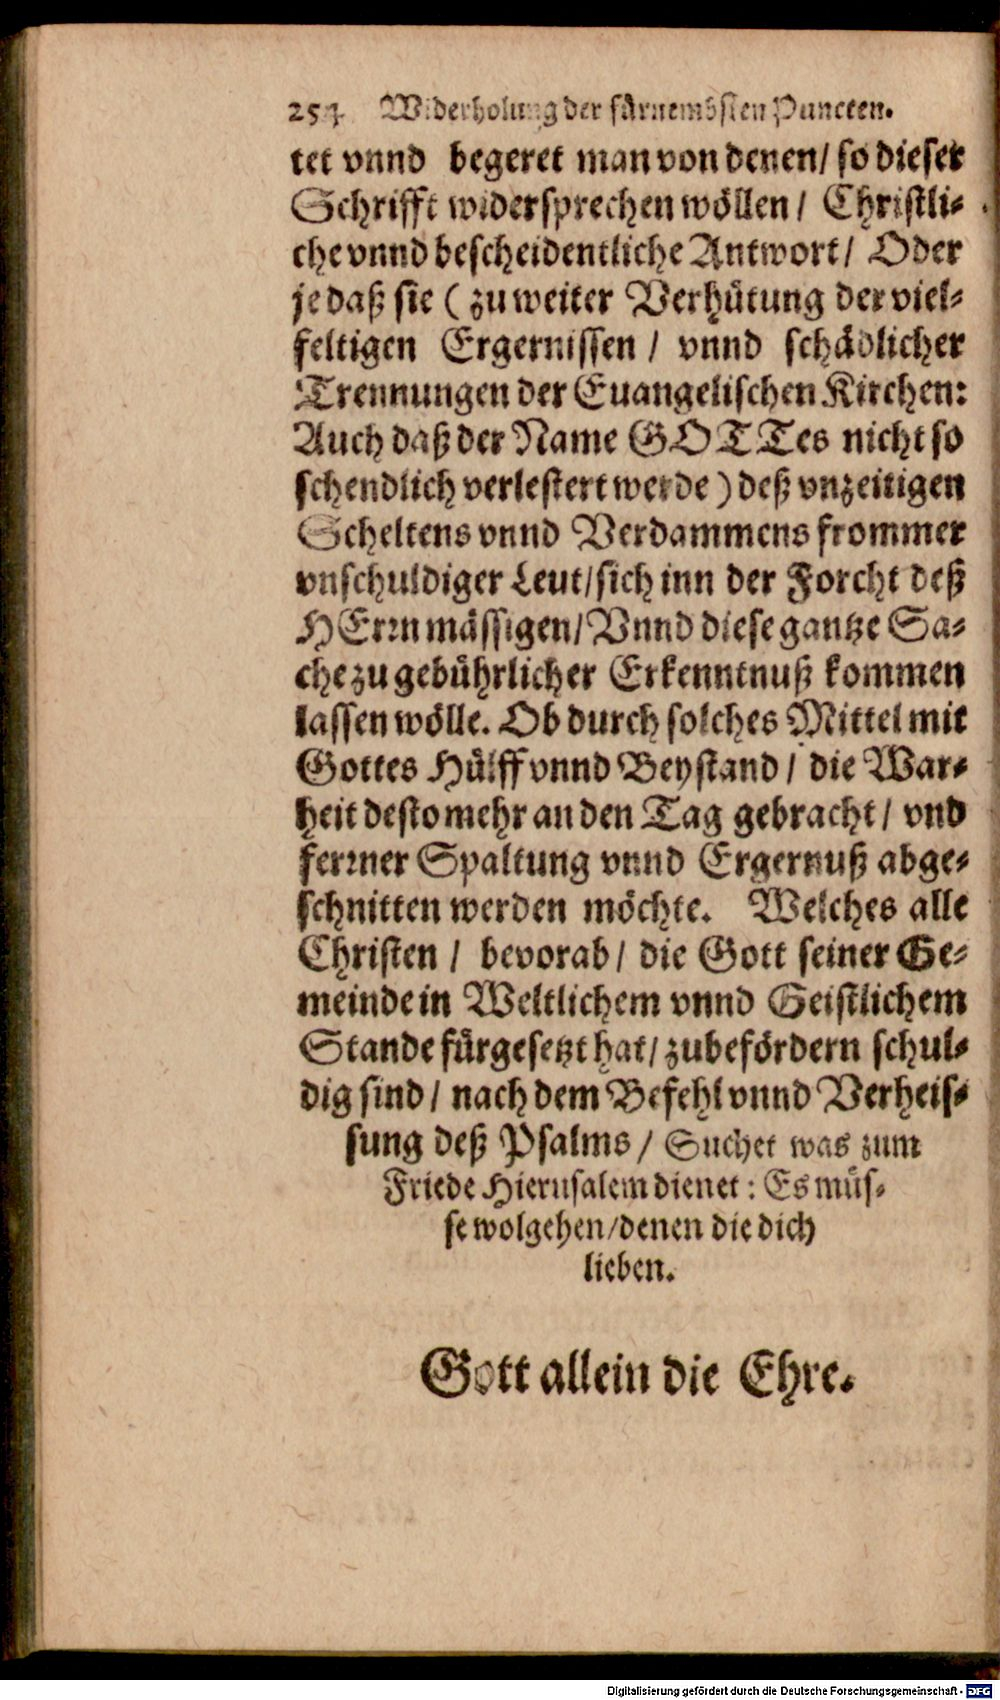 254 Widerholung der fürnembsten Puncten.
tet vnnd begeret man von denen/ so dieser
Schrifft widersprechen wöllen/ Christli-
che vnnd bescheidentliche Antwort/ Oder
je daß sie ( zu weiter Verhütung der viel-
feltigen Ergernissen / vnnd schädlicher
Trennungen der Euangelischen Kirchen:
Auch daß der Name GOTTes nicht so
schendlich verlestert werde ) deß vnzeitigen
Scheltens vnnd Verdammens frommer
vnschuldiger Leut/sich inn der Forcht deß
HErrn mässigen/ Vnnd diese gantze Sa-
che zu gebührlicher Erkenntnuß kommen
lassen wölle. Ob durch solches Mittel mit
Gottes Hülff vnnd Beystand / die War-
heit desto mehr an den Tag gebracht/ vnd
ferrner Spaltung vnnd Ergernuß abge-
schnitten werden möchte. Welches alle
Christen / bevorab/ die Gott seiner Ge-
meinde in Weltlichem vnnd Geistlichem
Stande fürgesetzt hat/ zubefördern schul-
dig sind/ nach dem Befehl vnnd Verheis-
sung deß Psalms/ Suchet was zum
Friede Hierusalem dienet: Es müs-
se wolgehen/denen die dich
lieben.
Gott allein die Ehre.
Digitalisierung gefördert durch die Deutsche Forschungsgemeinschaft - DFG